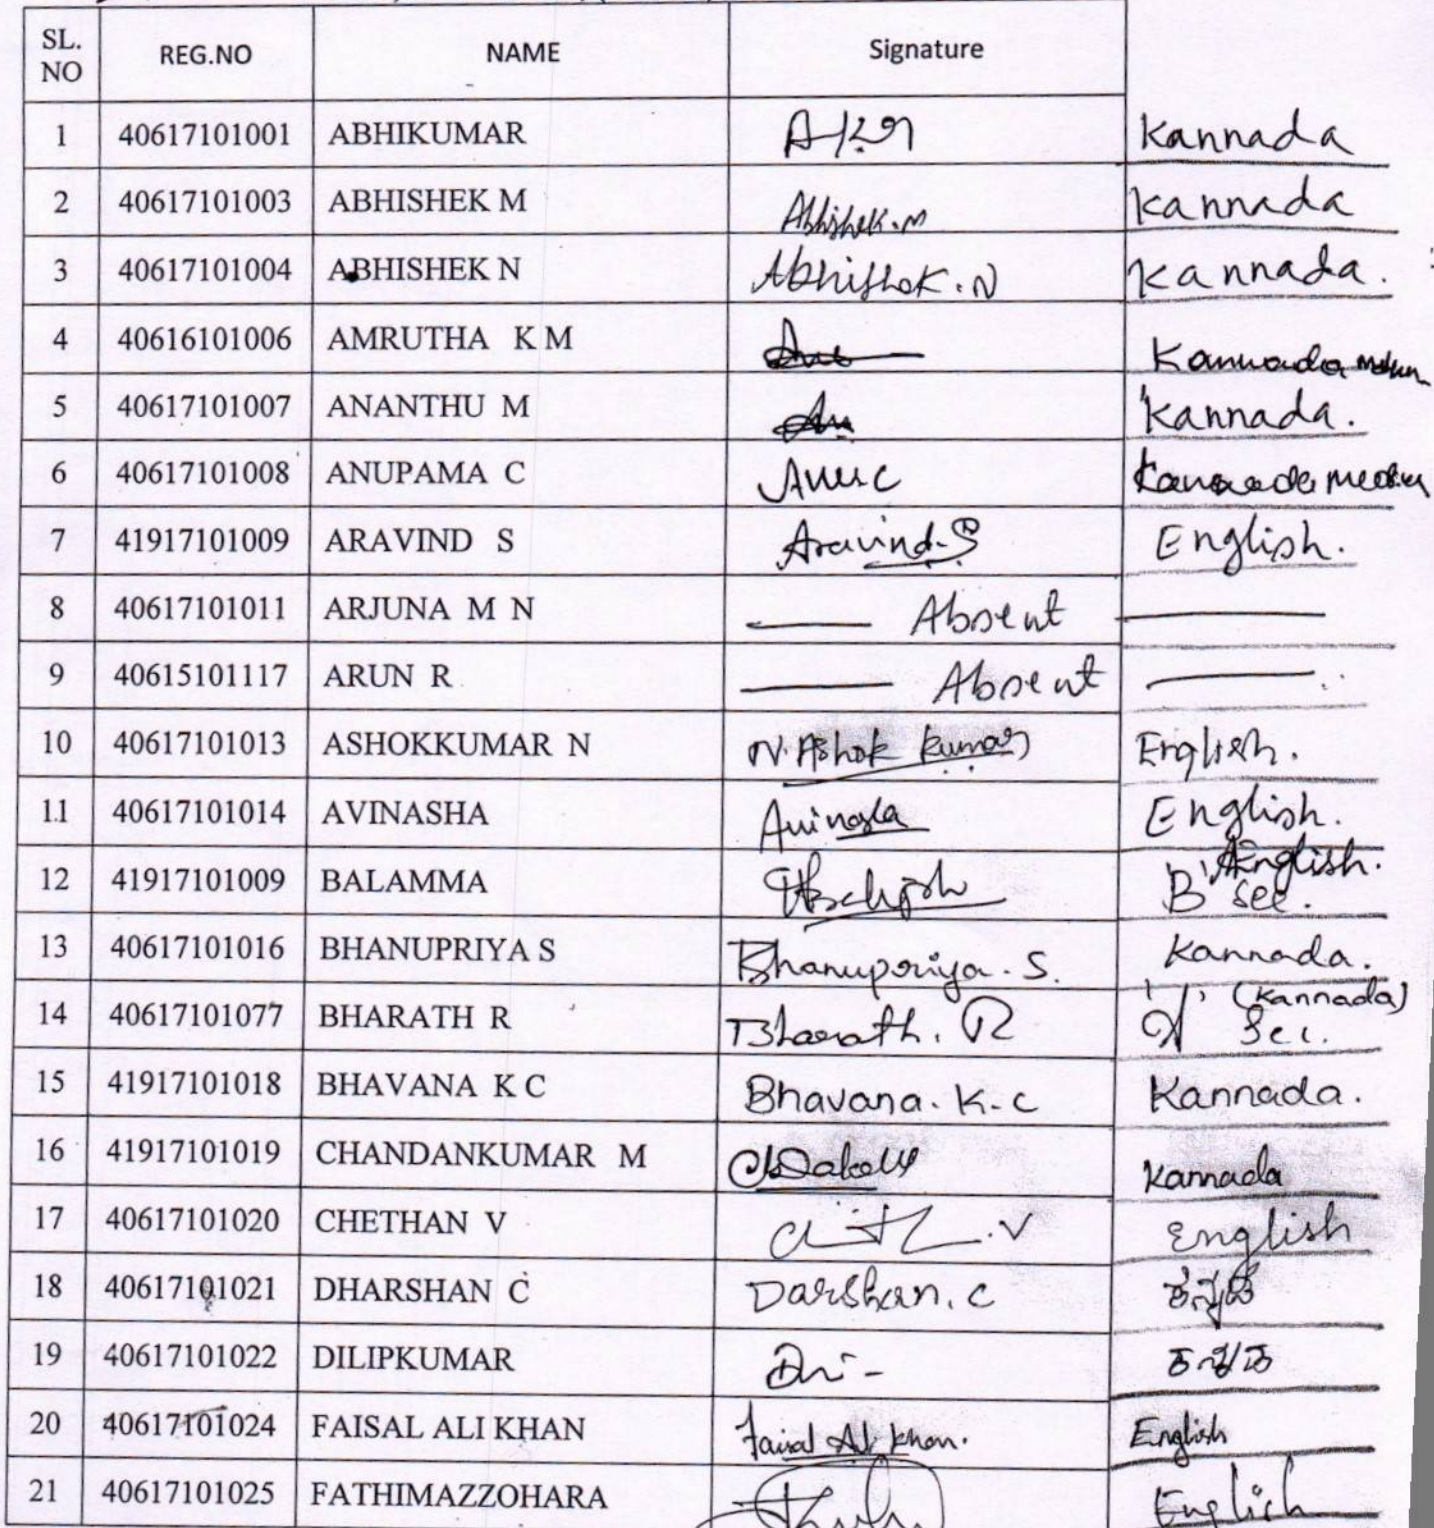 SL. NO REG.NO NAME Signature
1 40617101001 ABHIKUMAR Kannada
2 40617101003 ABHISHEK M Abhishek.M Kannada
3 40617101004 ABHISHEK N Abhishek.N Kannada.
4 40616101006 AMRUTHA K M Kannada
5 40617101007 ANANTHU M Kannada.
6 40617101008 ANUPAMA C Anu.C Kannada
7 41917101009 ARAVIND S Aravind.S English.
8 40617101011 ARJUNA M N Absent
9 40615101117 ARUN R Absent
10 40617101013 ASHOKKUMAR N N.Ashok Kumar English.
11 40617101014 AVINASHA Avinasha English.
12 41917101009 BALAMMA English.
B Sec.
13 40617101016 BHANUPRIYA S Bhanupriya.S. Kannada.
14 40617101077 BHARATH R Bharath.R (Kannada)
'A' Sec.
15 41917101018 BHAVANA K C Bhavana.K.C Kannada.
16 41917101019 CHANDANKUMAR M Kannada
17 40617101020 CHETHAN V English
18 40617101021 DHARSHAN C Darshan.C ಕನ್ನಡ
19 40617101022 DILIPKUMAR ಕನ್ನಡ
20 40617101024 FAISAL ALI KHAN Faisal Ali Khan. English
21 40617101025 FATHIMAZZOHARA English